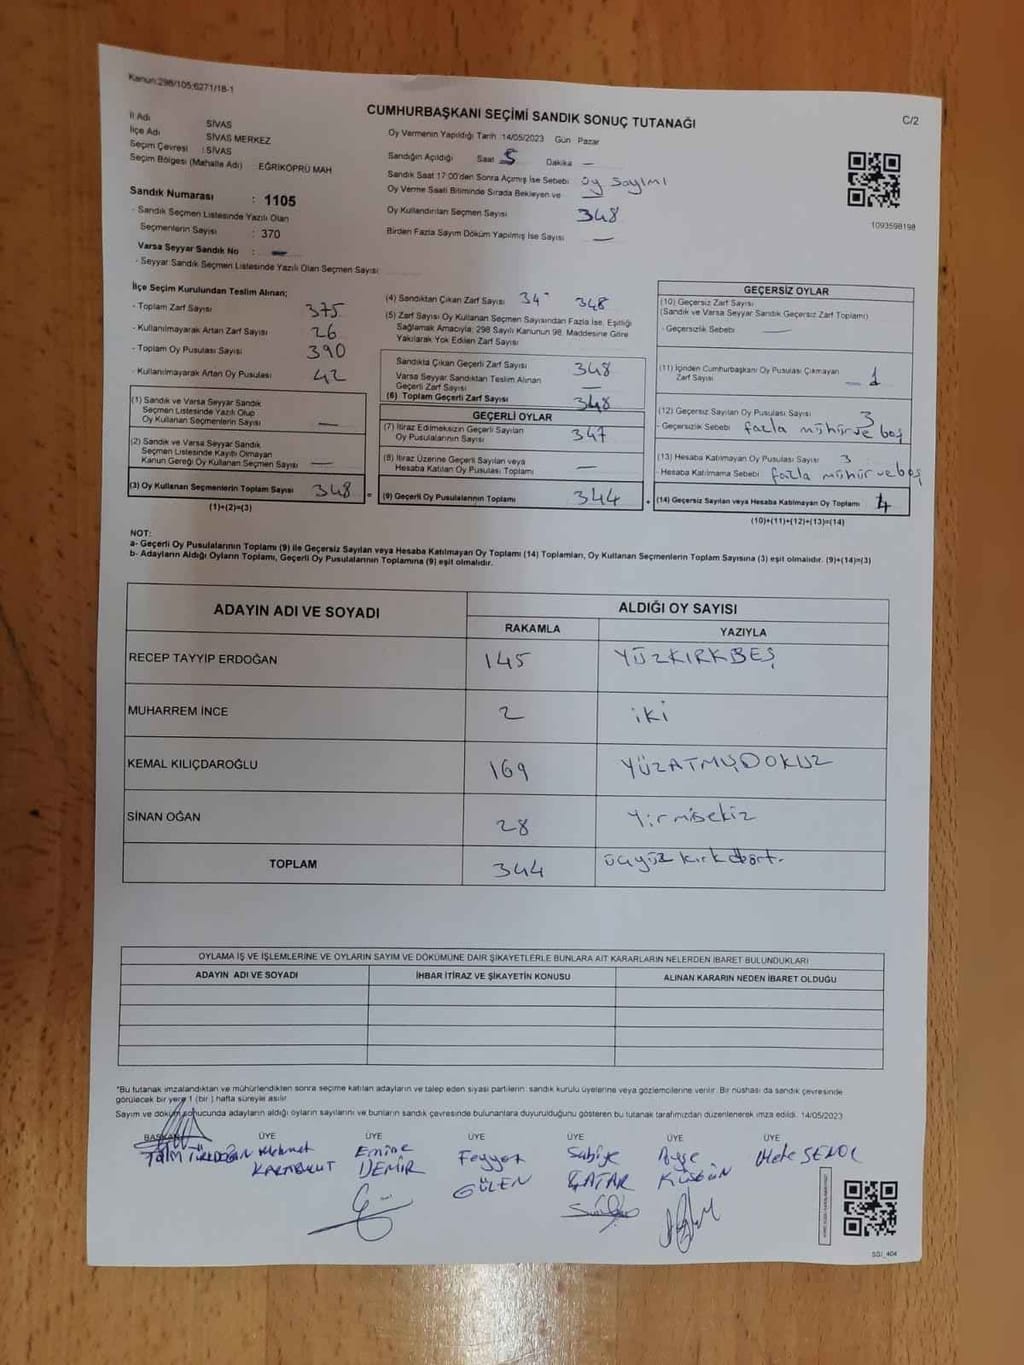 Kanun:298/105;6271/18-1
CUMHURBAŞKANI SEÇİMİ SANDIK SONUÇ TUTANAĞI
C/2
İl Adı SİVAS
İlçe Adı SİVAS MERKEZ
Seçim Çevresi : SİVAS
Seçim Bölgesi (Mahalle Adı) EĞRİKÖPRÜ MAH
Sandık Numarası : 1105
- Sandık Seçmen Listesinde Yazılı Olan
Seçmenlerin Sayısı : 370
Varsa Seyyar Sandık No : —
- Seyyar Sandık Seçmen Listesinde Yazılı Olan Seçmen Sayısı
Oy Vermenin Yapıldığı Tarih :14/05/2023 Gün Pazar
Sandığın Açıldığı Saat 5 Dakika —
Sandık Saat 17:00'den Sonra Açımış İse Sebebi oy sayımı
Oy Verme Saati Bitiminde Sırada Bekleyen ve
Oy Kullandırılan Seçmen Sayısı 348
Birden Fazla Sayım Döküm Yapılmış İse Sayısı —
1093598198
İlçe Seçim Kurulundan Teslim Alınan;
- Toplam Zarf Sayısı 375
- Kullanılmayarak Artan Zarf Sayısı 26
- Toplam Oy Pusulası Sayısı 390
- Kullanılmayarak Artan Oy Pusulası 42
(1) Sandık ve Varsa Seyyar Sandık
Seçmen Listesinde Yazılı Olup
Oy Kullanan Seçmenlerin Sayısı —
(2) Sandık ve Varsa Seyyar Sandık
Seçmen Listesinde Kayıtlı Olmayan
Kanun Gereği Oy Kullanan Seçmen Sayısı —
(3) Oy Kullanan Seçmenlerin Toplam Sayısı 348 =
(1)+(2)=(3)
(4) Sandıktan Çıkan Zarf Sayısı 348
(5) Zarf Sayısı Oy Kullanan Seçmen Sayısından Fazla İse, Eşitliği
Sağlamak Amacıyla; 298 Sayılı Kanunun 98. Maddesine Göre
Yakılarak Yok Edilen Zarf Sayısı
Sandıkta Çıkan Geçerli Zarf Sayısı 348
Varsa Seyyar Sandıktan Teslim Alınan
Geçerli Zarf Sayısı —
(6) Toplam Geçerli Zarf Sayısı 348
GEÇERLİ OYLAR
(7) İtiraz Edilmeksizin Geçerli Sayılan
Oy Pusulalarının Sayısı 347
(8) İtiraz Üzerine Geçerli Sayılan veya
Hesaba Katılan Oy Pusulası Toplamı —
(9) Geçerli Oy Pusulalarının Toplamı 344 +
GEÇERSİZ OYLAR
(10) Geçersiz Zarf Sayısı
(Sandık ve Varsa Seyyar Sandık Geçersiz Zarf Toplamı)
- Geçersizlik Sebebi —
(11) İçinden Cumhurbaşkanı Oy Pusulası Çıkmayan
Zarf Sayısı — 1
(12) Geçersiz Sayılan Oy Pusulası Sayısı 3
- Geçersizlik Sebebi fazla mühür ve boş
(13) Hesaba Katılmayan Oy Pusulası Sayısı 3
- Hesaba Katılmama Sebebi fazla mühür ve boş
(14) Geçersiz Sayılan veya Hesaba Katılmayan Oy Toplamı 4
(10)+(11)+(12)+(13)=(14)
NOT:
a- Geçerli Oy Pusulalarının Toplamı (9) ile Geçersiz Sayılan veya Hesaba Katılmayan Oy Toplamı (14) Toplamları, Oy Kullanan Seçmenlerin Toplam Sayısına (3) eşit olmalıdır. (9)+(14)=(3)
b- Adayların Aldığı Oyların Toplamı, Geçerli Oy Pusulalarının Toplamına (9) eşit olmalıdır.
ADAYIN ADI VE SOYADI ALDIĞI OY SAYISI
RAKAMLA YAZIYLA
RECEP TAYYİP ERDOĞAN 145 YÜZKIRKBEŞ
MUHARREM İNCE 2 iki
KEMAL KILIÇDAROĞLU 169 YÜZATMIŞDOKUZ
SİNAN OĞAN 28 Yirmisekiz
TOPLAM 344 üçyüz kırk dört.
OYLAMA İŞ VE İŞLEMLERİNE VE OYLARIN SAYIM VE DÖKÜMÜNE DAİR ŞİKAYETLERLE BUNLARA AİT KARARLARIN NELERDEN İBARET BULUNDUKLARI
ADAYIN ADI VE SOYADI İHBAR İTİRAZ VE ŞİKAYETİN KONUSU ALINAN KARARIN NEDEN İBARET OLDUĞU
*Bu tutanak imzalandıktan ve mühürlendikten sonra seçime katılan adayların ve talep eden siyasi partilerin; sandık kurulu üyelerine veya gözlemcilerine verilir. Bir nüshası da sandık çevresinde
görülecek bir yere 1 (bir ) hafta süreyle asılır.
Sayım ve döküm sonucunda adayların aldığı oyların sayılarını ve bunların sandık çevresinde bulunanlara duyurulduğunu gösteren bu tutanak tarafımızdan düzenlenerek imza edildi. 14/05/2023
BAŞKAN ÜYE ÜYE ÜYE ÜYE ÜYE ÜYE
Mehmet Emine Feyyaz Sabiye Ayşe Mete ŞENOL
KARABULUT DEMİR GÜLEN ÇATAR
SGI_404